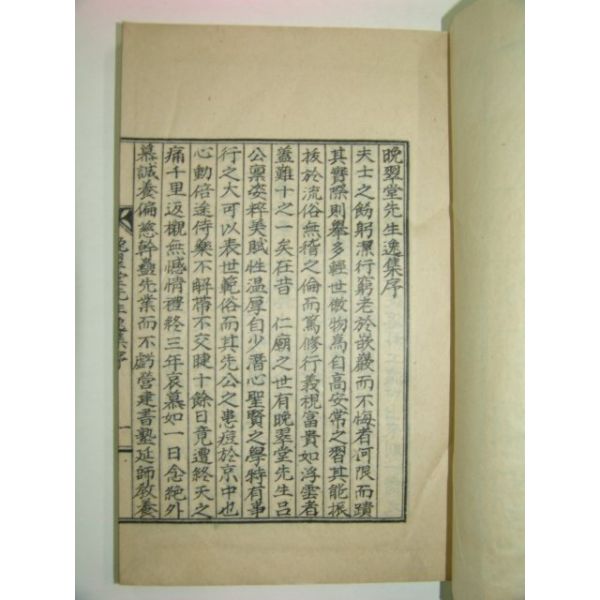 晚翠堂先生逸集序
夫士之飭躬潔行窮老於嵌巖而不悔者何限而蹟
其實際則擧多輕世傲物爲自高安常之習其能振
拔於流俗無稽之倫而篤修行義視富貴如浮雲者
蓋難十之一矣在昔 仁廟之世有晚翠堂先生呂
公稟姿粹美賦性温厚自少潛心聖賢之學特有事
行之大可以表世範俗而其先公之患疫於京中也
心動倍途侍藥不解帶不交睫十餘日竟遭終天之
痛千里返櫬無憾情禮終三年哀慕如一日念絶外
慕誠養偏慈幹蠱先業而不虧營建書塾延師敎養
晚翠堂先生逸集序 一